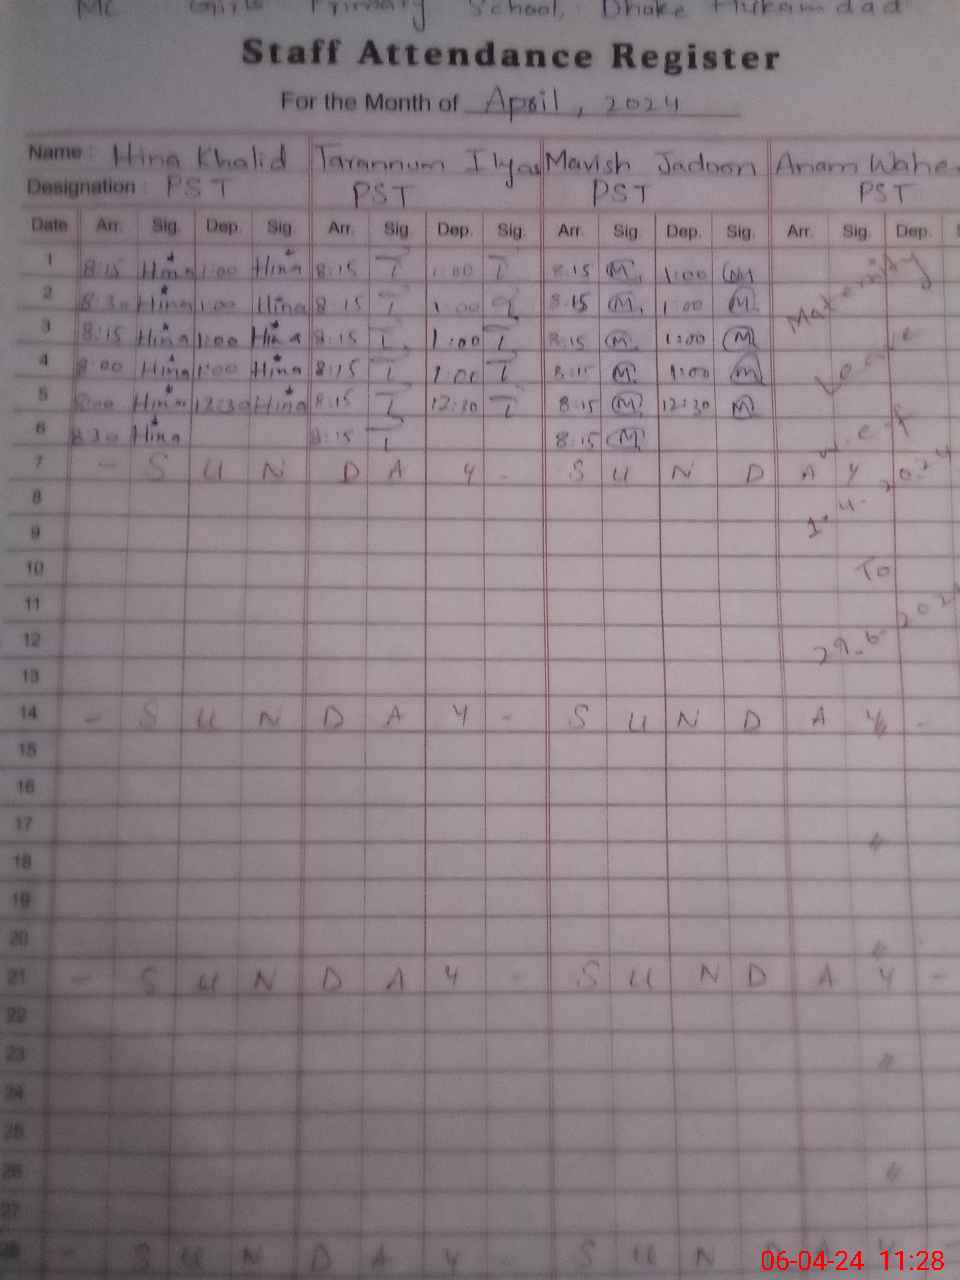 MC Girls Primary School, Dhoke Hukamdad
Staff Attendance Register
For the Month of April, 2024
Name: Hina Khalid Tarannum Ilyas Mavish Jadoon Anam Wahe
Designation: PST PST PST PST
Date Arr. Sig. Dep. Sig. Arr. Sig. Dep. Sig. Arr. Sig. Dep. Sig. Arr. Sig. Dep.
1 8:15 Hina 1:00 Hina 8:15 T 1:00 T 8:15 M 1:00 M Maternity
2 8:30 Hina 1:00 Hina 8:15 T 1:00 T 8:15 M 1:00 M
3 8:15 Hina 1:00 Hina 8:15 T 1:00 T 8:15 M 1:00 M Leave
4 8:00 Hina 1:00 Hina 8:15 T 1:00 T 8:15 M 1:00 M
5 8:00 Hina 12:30 Hina 8:15 T 12:30 T 8:15 M 12:30 M
6 8:30 Hina 8:15 T 8:15 M w.e.f
7 - S U N D A Y - S U N D A Y
8 1.4.2024
9
10 To
11
12 29.6.202
13
14 - S U N D A Y - S U N D A Y -
15
16
17 "
18
19
20 "
21 - S U N D A Y - S U N D A Y -
22
23 "
24
25
26 "
27
28 - S U N D A Y - S U N D A Y
06-04-24 11:28